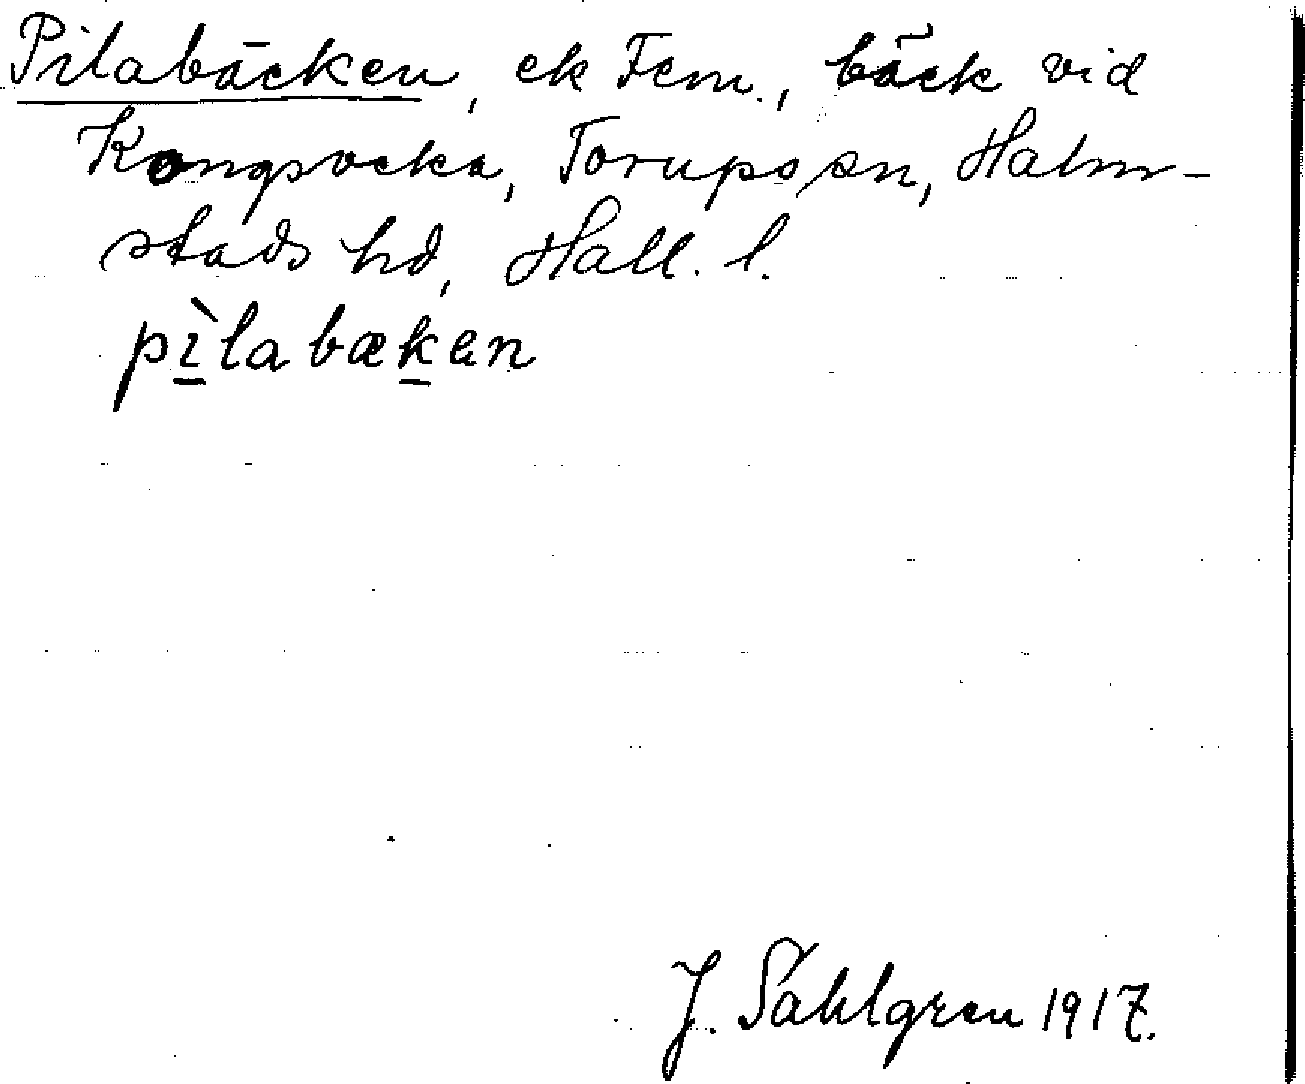 Pilabäcken, ek Fem., bäck vid
Kongsvecka, Torups sn, Halm-
stads hd, Hall. l.
pìlabækan
J. Sahlgren 1917.